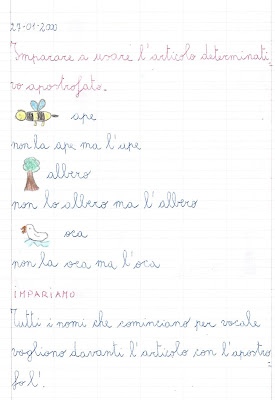 27-01-2000
Imparare a usare l'articolo determinati
vo apostrofato.
ape
non la ape ma l'ape
albero
non lo albero ma l'albero
oca
non la oca ma l'oca
IMPARIAMO
Tutti i nomi che cominciano per vocale
vogliono davanti l'articolo con l'apostro
fo l'.